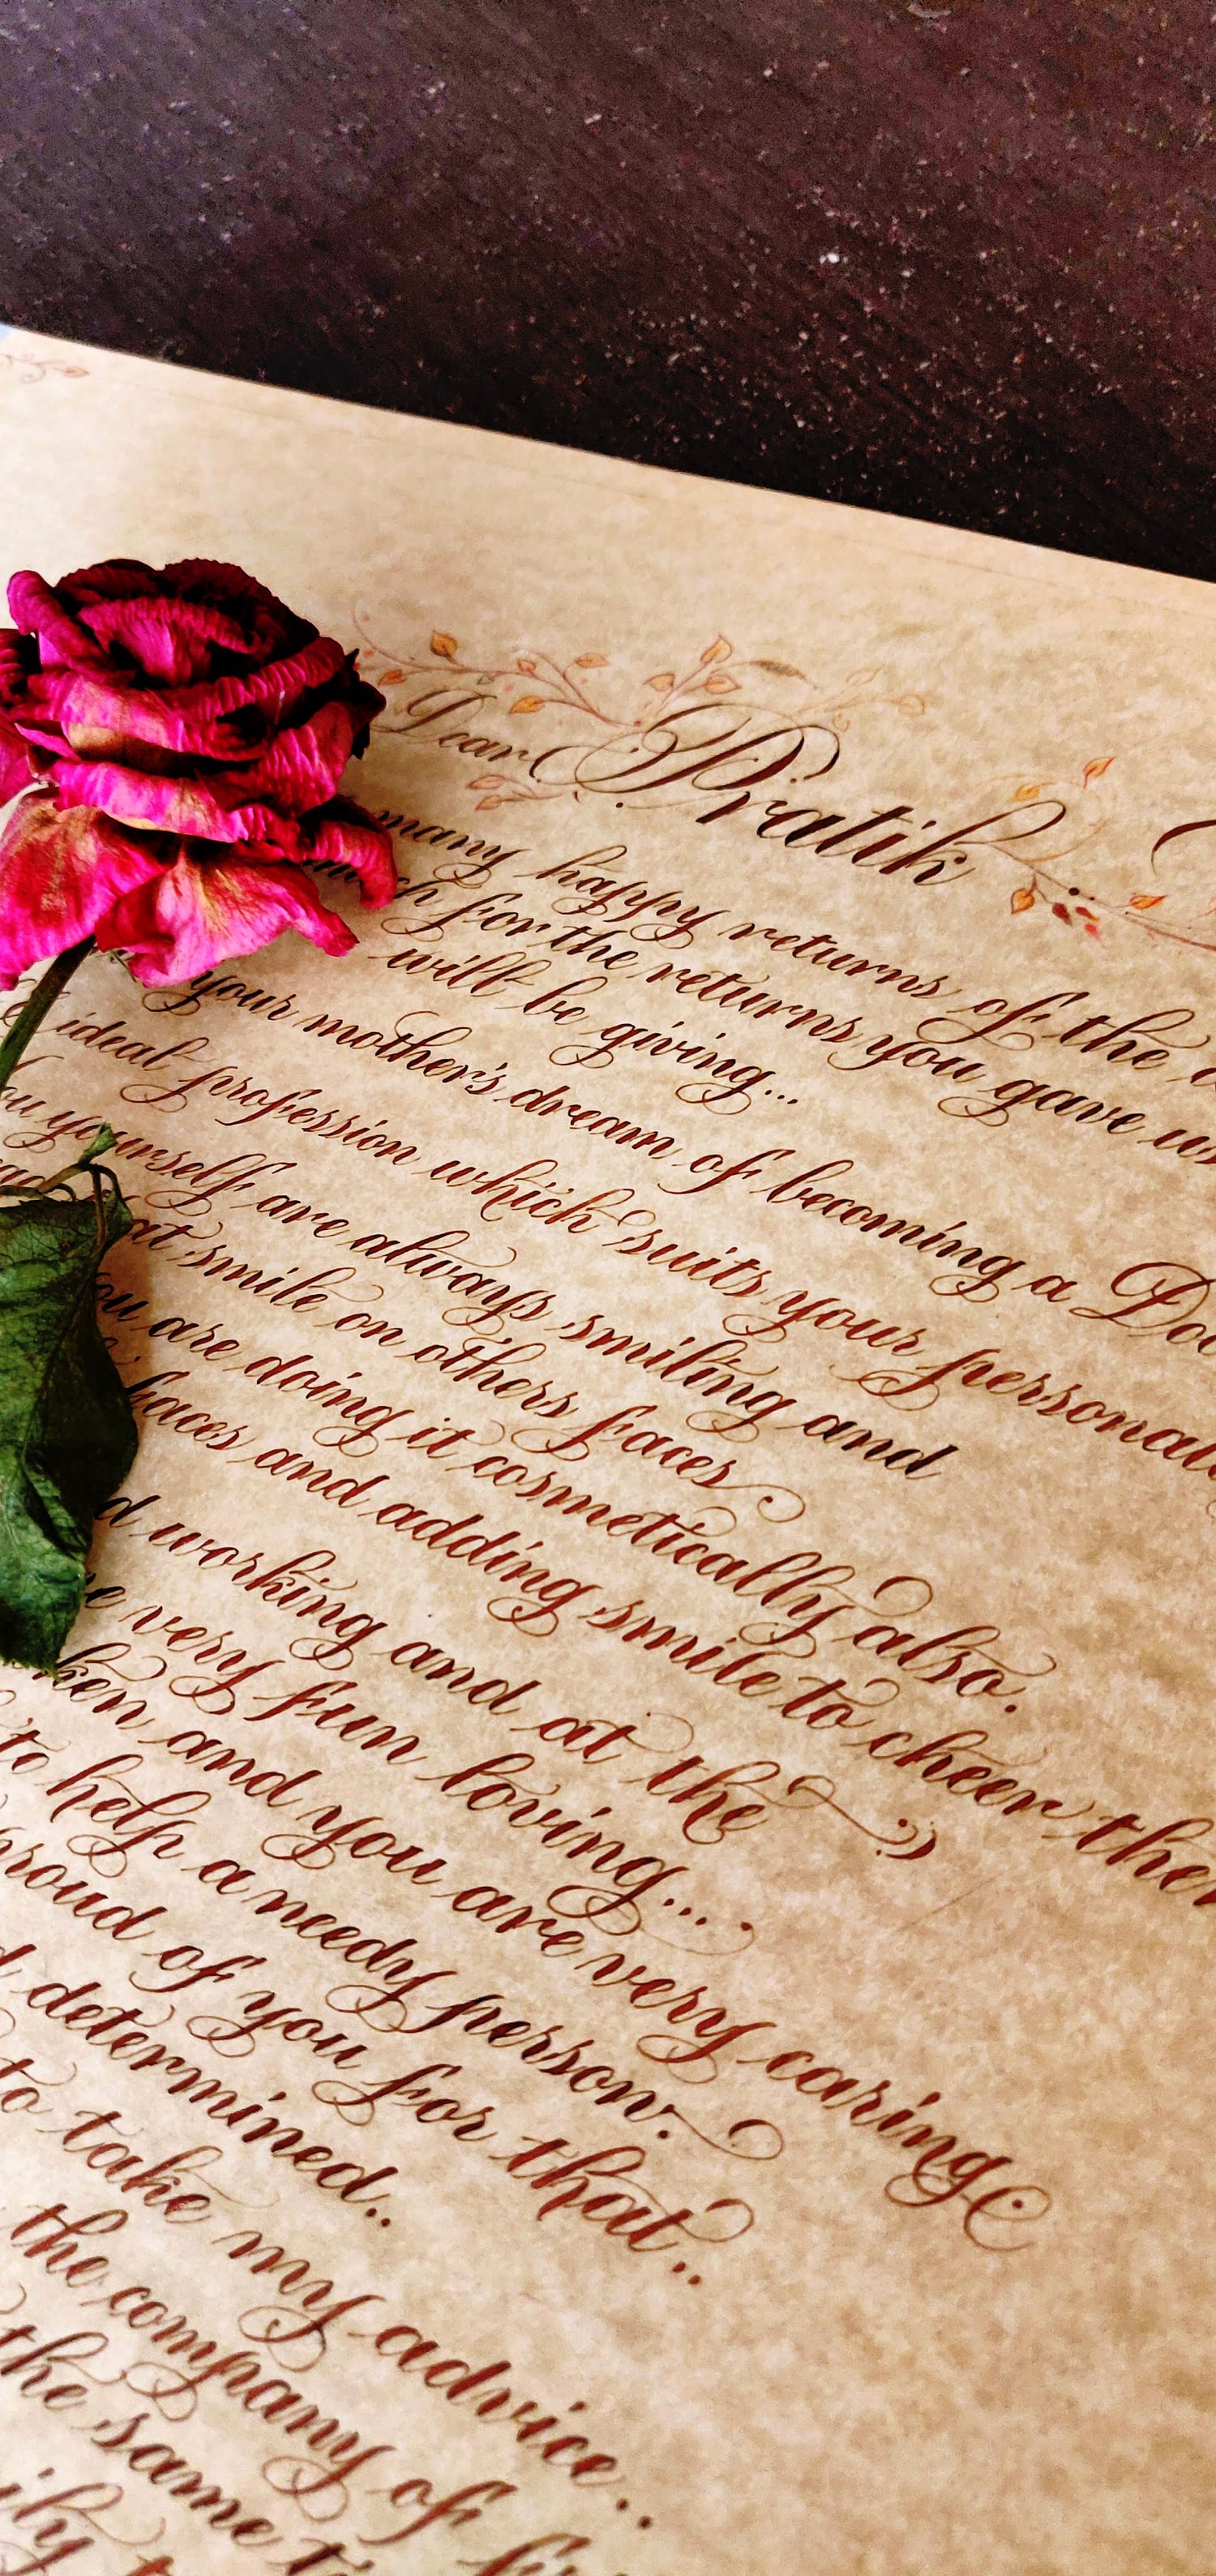 Dear Pratik
many happy returns of the
for the returns you gave us
will be giving...
your mother's dream of becoming a
ideal profession which suits your
yourself are always smiling and
smile on others faces.
are doing it cosmetically also.
faces and adding smile to cheer
working and at the
very fun loving....
and you are very caring
to help a needy person.
proud of you for that..
determined..
to take my advice..
the company of
the same